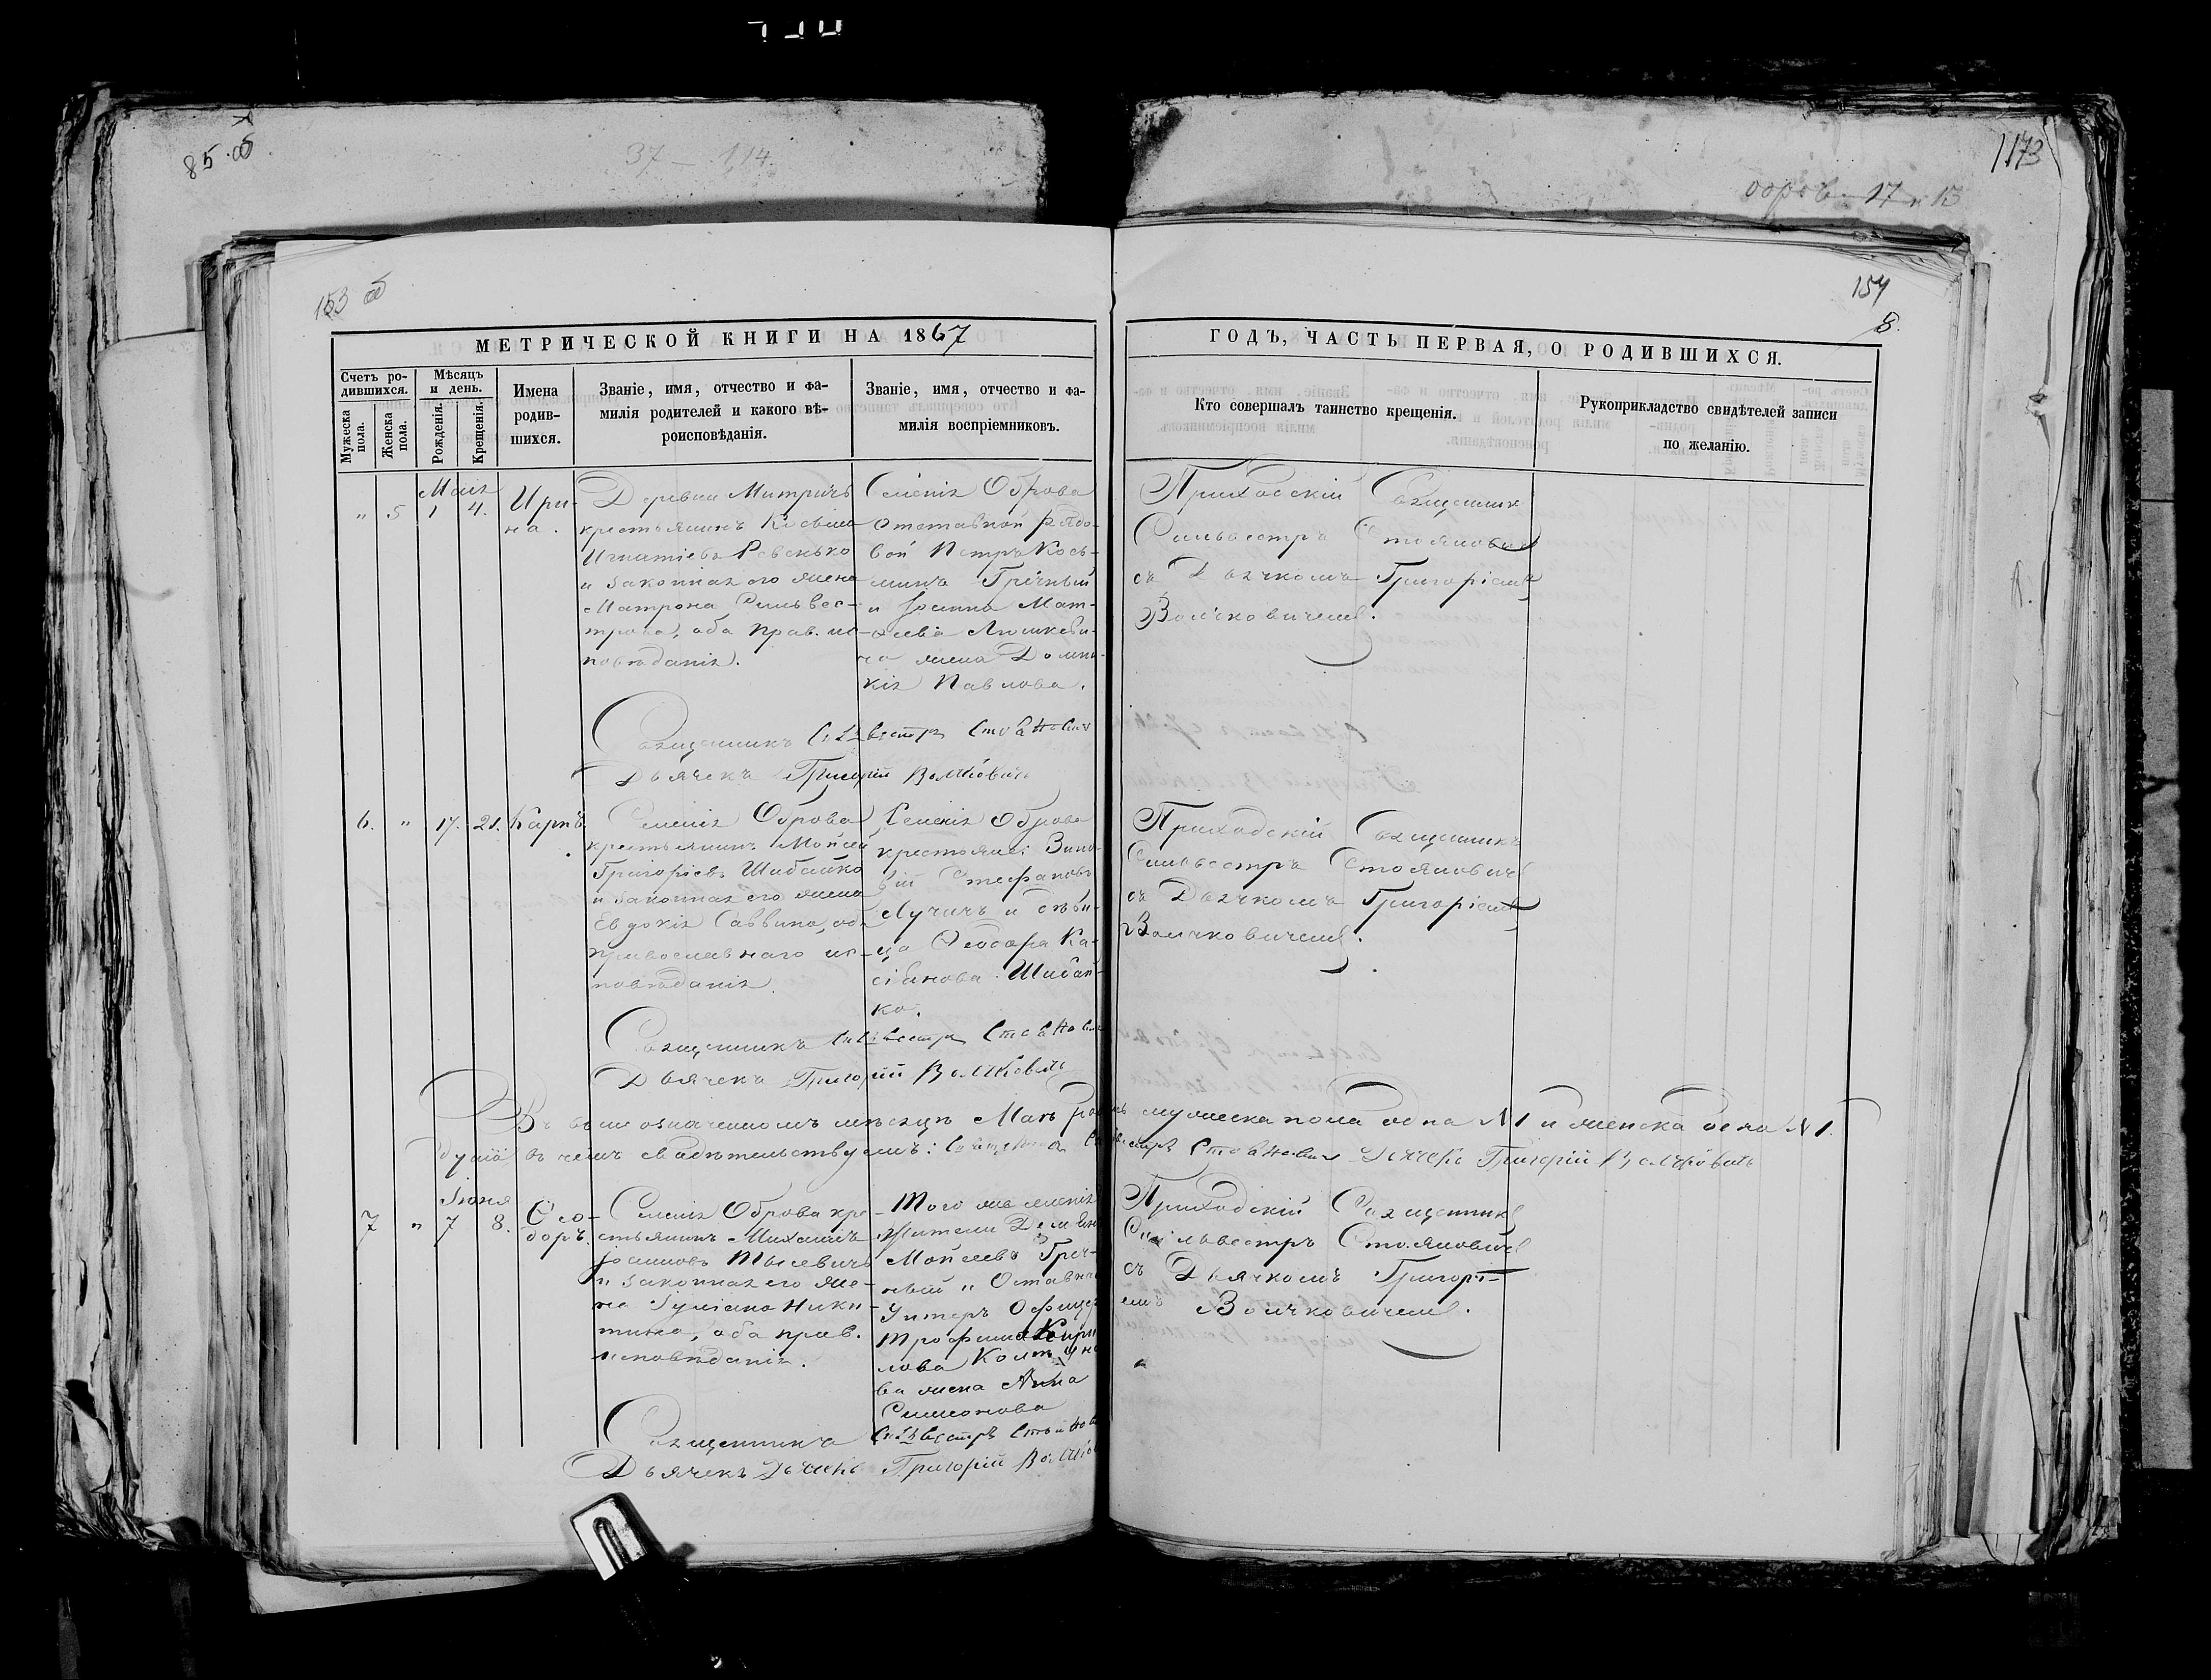 85 об
37 — 114.
1173
153 об
154
8.
МЕТРИЧЕСКОЙ КНИГИ НА 1867
ГОДЪ, ЧАСТЬ ПЕРВАЯ, О РОДИВШИХСЯ.
Счетъ ро-
дившихся.
Мужеска
пола.
Женска
пола.
Мѣсяцъ
и день.
Рожденія.
Крещенія.
Имена
родив-
шихся.
Званіе, имя, отчество и фа-
милія родителей и какого вѣ-
роисповѣданія.
Званіе, имя, отчество и фа-
милія воспріемниковъ.
Кто совершалъ таинство крещенія.
Рукоприкладство свидѣтелей записи
по желанію.
Маія
" 5 1 4.
Ири-
на.
Деревни Митричъ
крестьянинъ
Игнатіевъ Ревенько
и законная его жена
Матрона Сильвес-
трова, оба прав. ис-
повѣданія.
Селенія Оброва
Отставной Рядо-
вой Петръ Кось-
минъ Гречный
и Іоанна Мат-
ѳеева Люшкеви-
ча жена Домни-
кія Павлова.
Приходскій Священникъ
Сильвестръ Стояновичъ
съ Дьячкомъ Григоріемъ
Волчковичемъ.
Священникъ Сильвестръ Стояновичъ
Дьячекъ Григорій Волчковичъ
6. " 17. 21. Карпъ.
Селенія Оброва
крестьянинъ Мойсей
Григоріевъ Шибайко
и законная его жена
Евдокія Саввина, оба
православнаго ис-
повѣданія.
Селенія Оброва
крестьяне: Зино-
вій Стефановъ
Лучичъ и дѣви-
ца Ѳеодора Ка-
сіянова Шибай-
ко.
Приходскій Священникъ
Сильвестръ Стояновичъ
съ Дьячкомъ Григоріемъ
Волчковичемъ.
Священникъ Сильвестръ Стояновичъ
Дьячекъ Григорій Волчковичъ
Въ выше означенномъ мѣсяцѣ Маѣ мужеска пола одна N 1 и женска одна N 1.
душа въ чемъ свидѣтельствуемъ: Священникъ Сильвестръ Стояновичъ Дьячекъ Григорій Волчковичъ
Іюня
7 " 7 8.
Ѳео-
доръ.
Селенія Оброва кре-
стьянинъ Михаилъ
Іоанновъ Тысевичъ
и законная его же-
на Іуліана Ники-
тина, оба прав.
исповѣданія.
Того же селенія
жители
Мойсеевъ Греч-
ный и
Унтеръ Офицера
Трофима Кири-
лова
ва жена Анна
Симеонова
Приходскій Священникъ
Сильвестръ Стояновичъ
съ Дьячкомъ Григорі-
емъ Волчковичемъ.
Священникъ Сильвестръ
Дьячекъ Дьячекъ Григорій